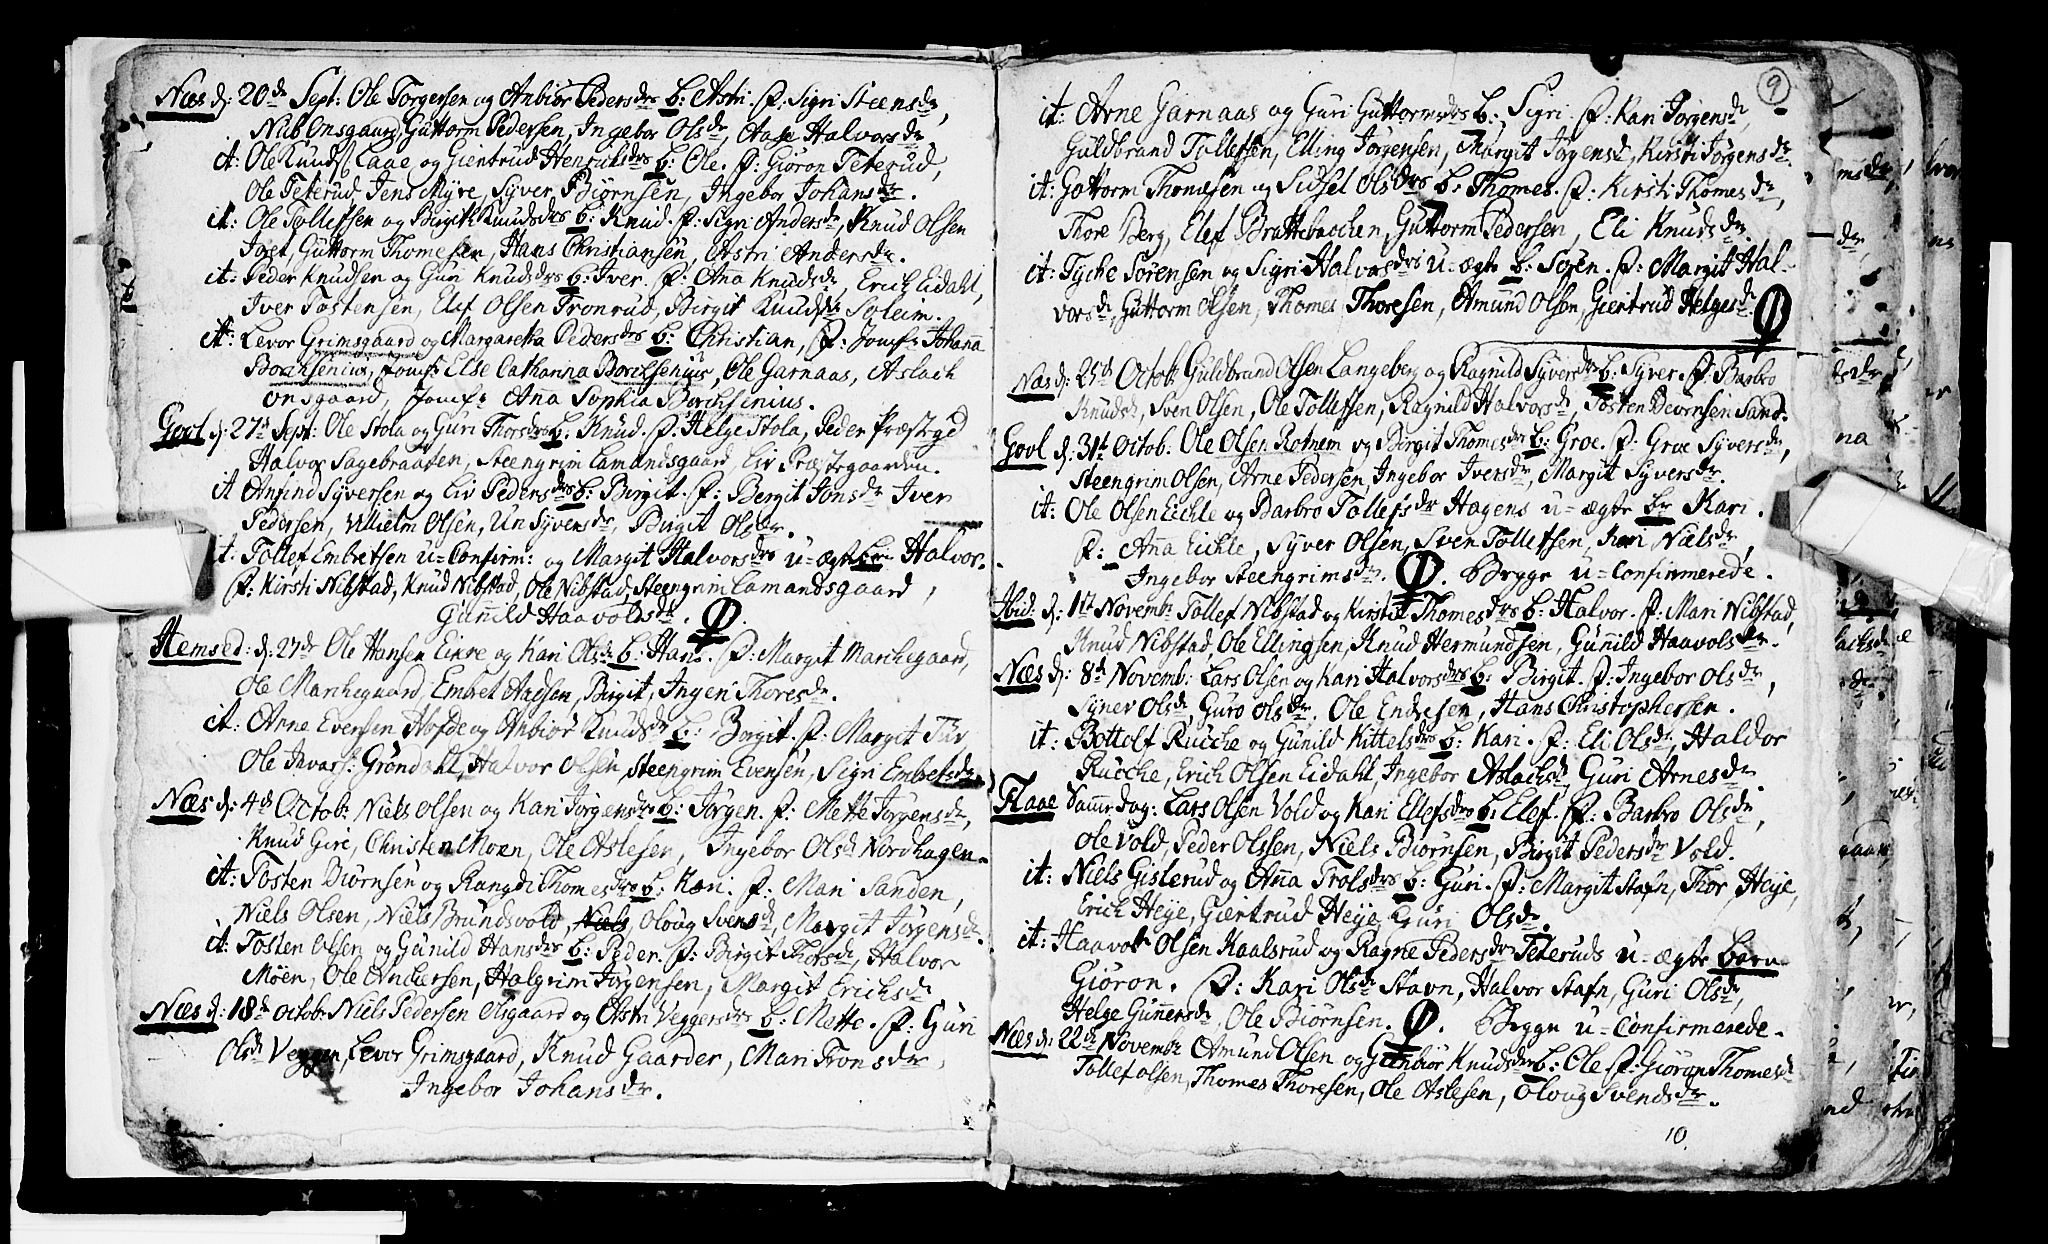 Næs d: 20de Sept: Ole Torgersen og Anbiør Pedersdrs b: Astri. F: Sigri Steensdr,
Onsgaard, Guttorm Pedersen, Ingebor Olsdr, Aase Halvorsdr
it: Ole Knuds Laae og Giertrud Henrichsdrs b: Ole. F: Giøron Teterud,
Ole Teterud, Jens Myre, Syver Biørnsen, Ingebor Johansdr.
it: Ole Tollefsen og Birgit Knudsdrs b: Knud. F: Sigri Andersdr, Knud Olsen
Guttorm Thomesen, Hans Christiansen, Astri Andersdr.
it: Peder Knudsen og Guri Knudsdrs b: Iver. F: Anna Knudsdr, Erich Eidahl,
Iver Tostensen, Elef Olsen Tronrud, Birgit Knudsdr Soleim.
it: Levor Grimsgaard og Margaretha Pedersdrs b: Christian, F: Jomfr Johanna
Borchsenius, Jomfr Else Catharina Borchsenius, Ole Garnaas, Aslach
Onsgaard, Jomfr Anna Sophia Borchsenius.
Goel d: 27d Sept: Ole Stola og Guri Thorsdrs b: Knud. F: Helge Stola, Peder Præstegd
Halvor Sagebraaten, Steengrim Lamandsgaard, Liv Præstegaarden.
it Anfind Syversen og Liv Pedersdrs b: Birgit. F: Bergit Jonsdr Iver
Pedersen, Vilhelm Olsen, Un Syversdr, Birgit Olsdr.
it: Tollef Embretsen u-Confirm: og Margit Halvorsdrs u-ægte bn Halvor.
F: Kirsti Nibstad, Knud Nibstad, Ole Nibstad, Steengrim Lamandsgaard,
Gunnild Haavolsdr.
Hemsed: d: 27de Ole Hansen Eikre og Kari Olsdr b: Hans. F: Margit Marchegaard,
Ole Marchegaard, Embret Aadsen, Birgit, Ingeri Thoresdr.
it: Arne Evensen Hofde og Anbiør Knudsdr b: Birgit. F: Margit Tuv
Ole Ivars: Grøndahl, Halvor Olsen, Steengrim Evensen, Sigri Embretsdr
Næs d: 4d Octob: Niels Olsen og Kari Jørgensdrs b: Jørgen. F: Mette Jørgensdr,
Knud Gire, Christen Moen, Ole Aslesen, Ingebor Olsd Nordhagen.
it: Tosten Biørnsen og Rangdi Thomesdrs b: Kari. F: Mari Sanden,
Niels Olsen, Niels Brundsvold, Niels, Oloug Svensd, Margit Jørgensdr.
it: Tosten Olsen og Gunild Hansdrs b: Peder. F: Birgit Thorsdr, Halvor
Moen, Ole Anbersen, Halgrim Jørgensen, Margit Erichsdr
Næs d: 18d Octob: Niels Pedersen Olsgaard og Astri Veggersdrs b: Mette. F: Guri
Olsdr Veggen, Levor Grimsgaard, Knud Gaarder, Mari Tronsdr,
Ingebor Johansdr.
9
it: Arne Garnaas og Guri Guttormsdrs b: Sigri. F: Kari Jørgensdr,
Guldbrand Tollefsen, Elling Jørgensen, Margit Jørgensd, Kirsti Jørgensdr.
it: Gottorm Thomesen og Sidsel Olsdrs b: Thomes. F: Kirsti Thomesdr,
Thore Berg, Elef Brattebacchen, Guttorm Pedersen, Eli Knudsdr.
it: Tyche Sørensen og Sigri Halvorsdrs u-ægte b: Søren. F: Margit Hal-
vorsdr, Guttorm Olsen, Thomes Thoresen, Amund Olsen, Giertrud Helgesdr.
Næs d: 25de Octob: Guldbrand Olsen Langeberg og Ragnild Syversdr b: Syver. F: Barbro
Knudsdr, Sven Olsen, Ole Tollefsen, Ragnild Halvorsdr, Tosten Beornsen Sand.
Goel d: 31t Octob. Ole Olsen Rotnem og Birgit Thomesdrs b: Groe. F: Groe Syversdr,
Steengrim Olsen, Arne Pedersen, Ingebor Iversdr, Margit Syversdr.
it: Ole Olsen Eichle og Barbro Tollefsdr Hagens u-ægte bn Kari.
F: Anna Eichle, Syver Olsen, Sven Tollefsen, Kari Nielsdr,
Ingebor Steengrimsdr. Begge u-Confirmerede.
Ibid: d: 1st Novemb: Tollef Nibstad og Kirsti Thomesdrs b: Halvor. F: Mari Nibstad,
Knud Nibstad, Ole Ellingsen, Knud Hermundsen, Gunnild Haavolsdr.
Næs d: 8d Novemb: Lars Olsen og Kari Halvorsdrs b: Birgit. F: Ingebor Olsdr,
Synev Olsdr, Guro Olsdr, Ole Endresen, Hans Christophersen.
it: Bottolf Rucche og Gunild Kittelsdrs b: Kari. F: Eli Olsdr, Haldor
Rucche, Erich Olsen Eidahl, Ingebor Aslachsdr, Guri Arnesdr
Flaae Samedag: Lars Olsen Vold og Kari Ellefsdrs b: Elef. F: Barbro Olsdr,
Ole Vold, Peder Olssen, Niels Biørnsen, Birgit Pedersdr Vold.
it: Niels Gislerud og Anna Trolsdrs b: Guri. F: Margit Stafn, Thor Heye,
Erich Heye, Giertrud Heye, Guri Olsdr.
it: Haavor Olsen Kaalsrud og Ragne Pedersdr Teteruds u-ægte barn
Giøron. F: Kari Olsdr Stavn, Halvor Stafn, Guri Olsdr,
Helge Gunnersdr, Ole Biørnsen. Begge u-Confirmerede.
Næs d: 22de Novemb: Amund Olsen og Gunbiør Knudsdrs b: Ole F: Giøron Thomesdr
Tollef Olsen, Thomes Thoresen, Ole Aslesen, Oloug Svendsdr.
10